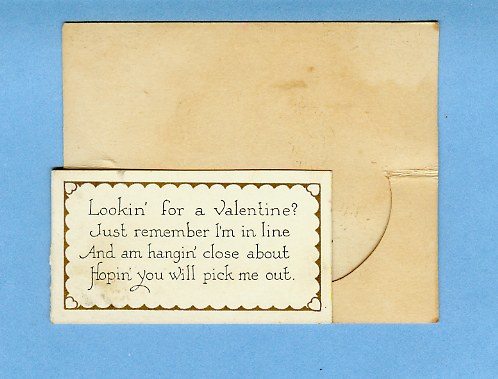 Lookin' for a Valentine?
Just remember I'm in line
And am hangin' close about
Hopin' you will pick me out.